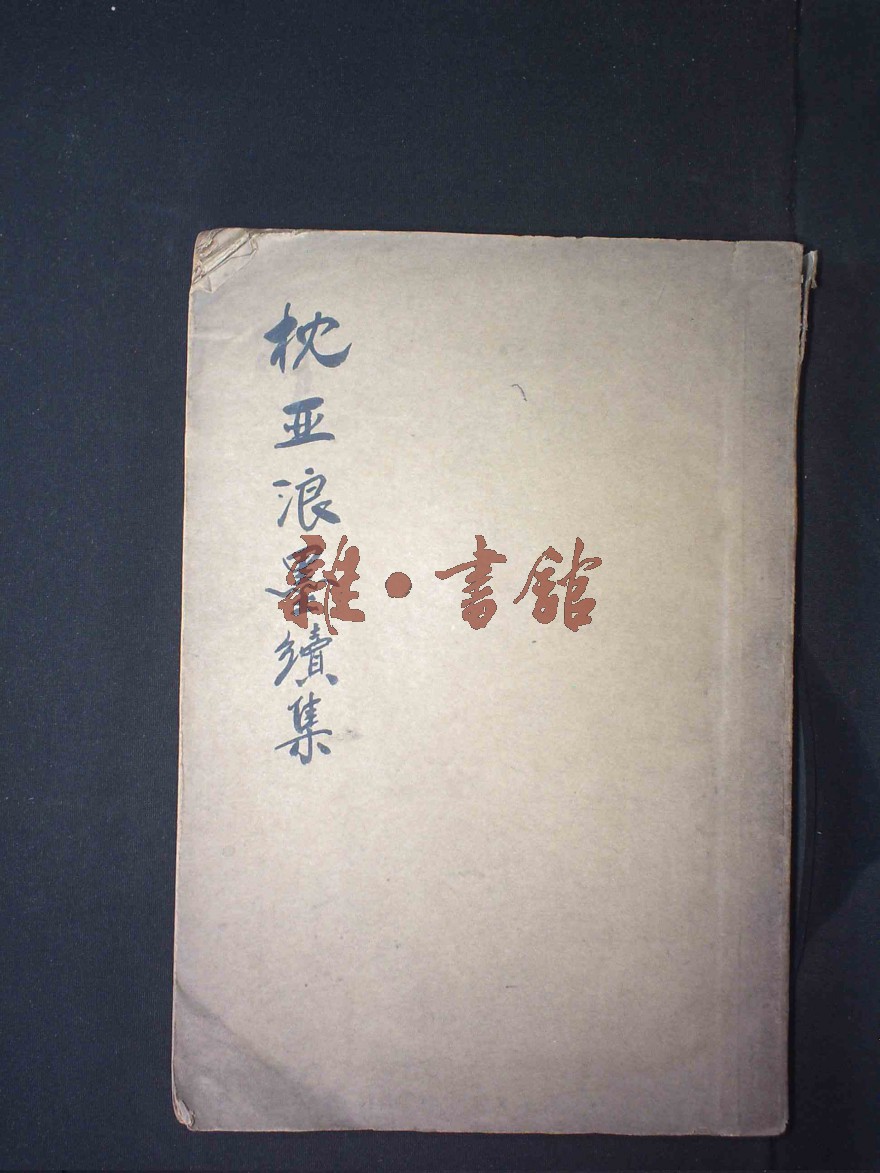 枕亚浪墨續集
雜·書館